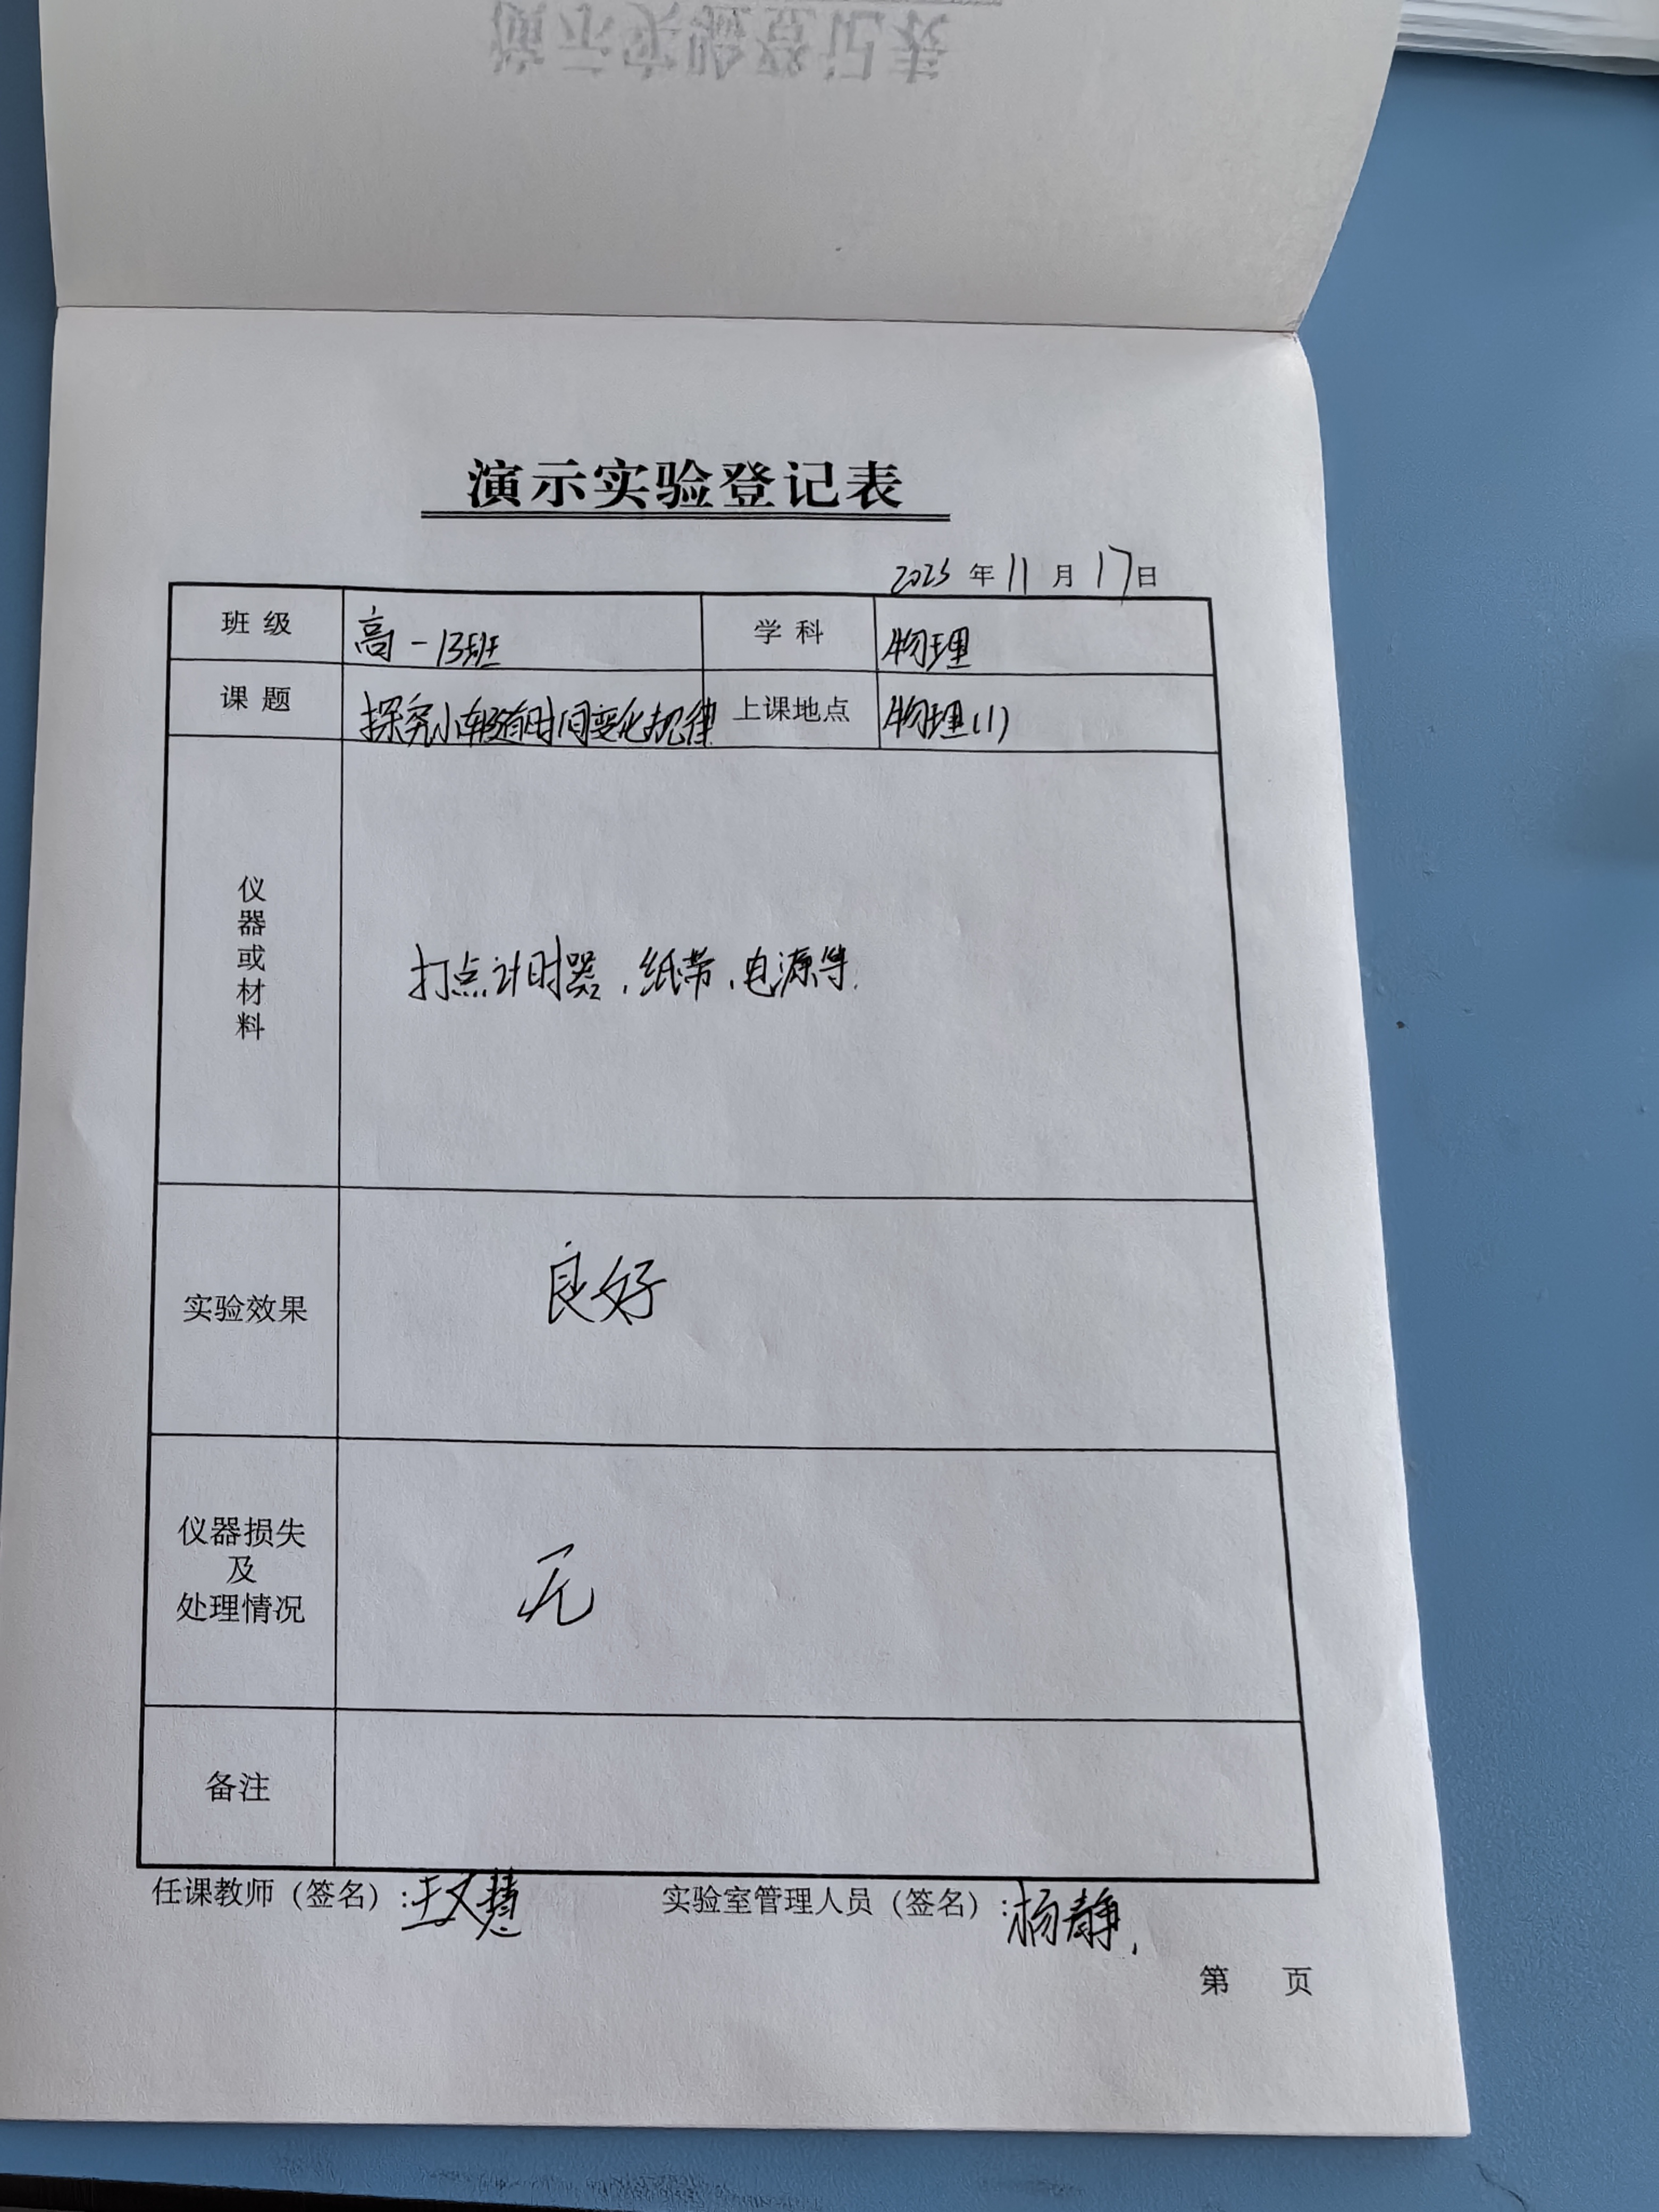 演示实验登记表
演示实验登记表
2023 年 11 月 17 日
班级 高一13班 学科 物理
课题 探究小车随时间变化规律 上课地点 物理(1)
仪器或材料 打点计时器、纸带、电源等.
实验效果 良好
仪器损失
及
处理情况 无
备注
任课教师（签名）:王文慧 实验室管理人员（签名）:杨静
第 页